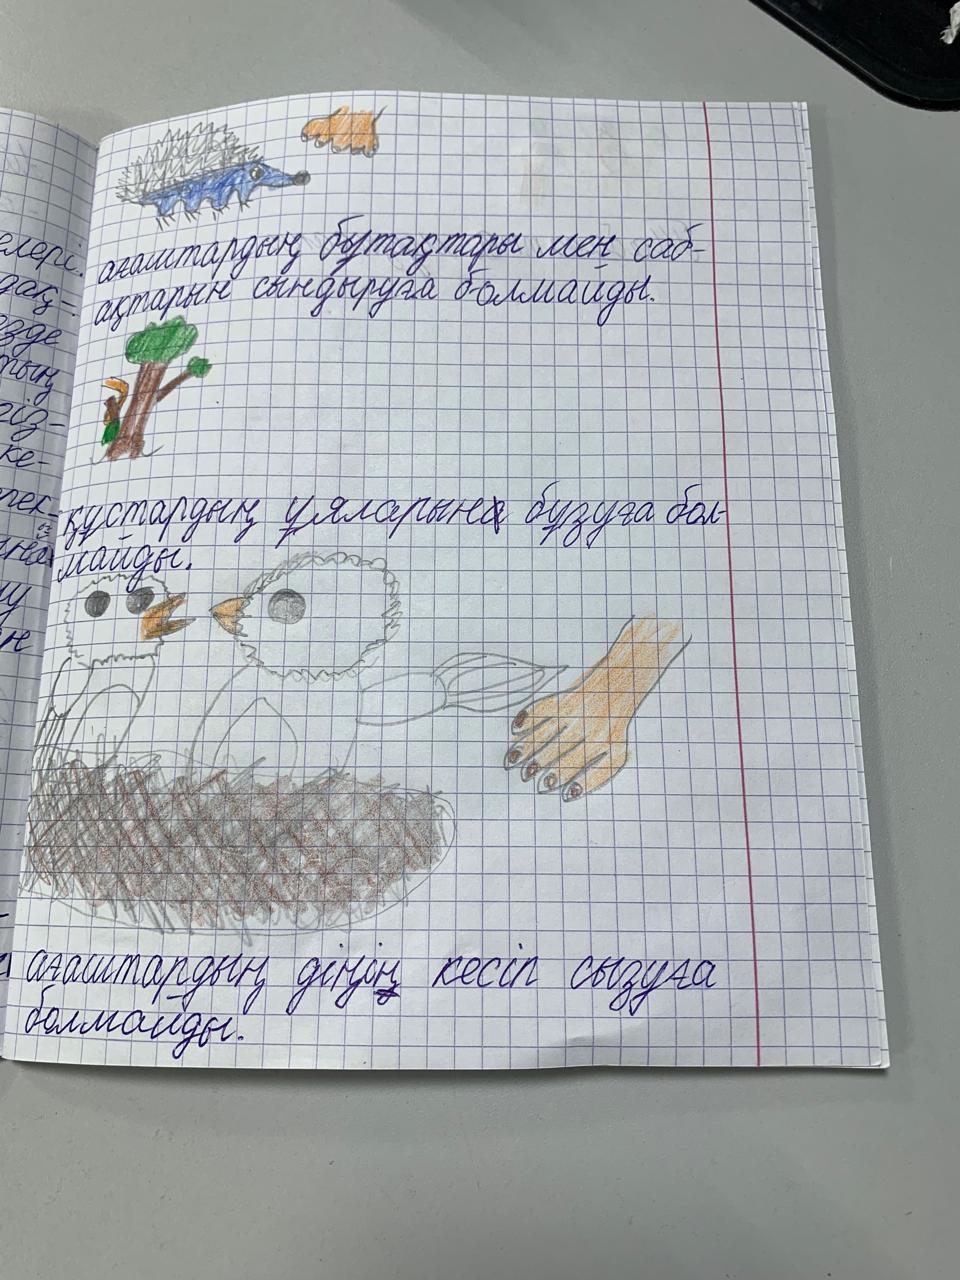 елері.
дақ-
езде
тың
гіз-
ке-
ағаштардың бұтақтары мен саб-
ақтарын сындыруға болмайды.
құстардың ұяларына бұзуға бол-
майды.
ағаштардың діңін кесіп сызуға
болмайды.